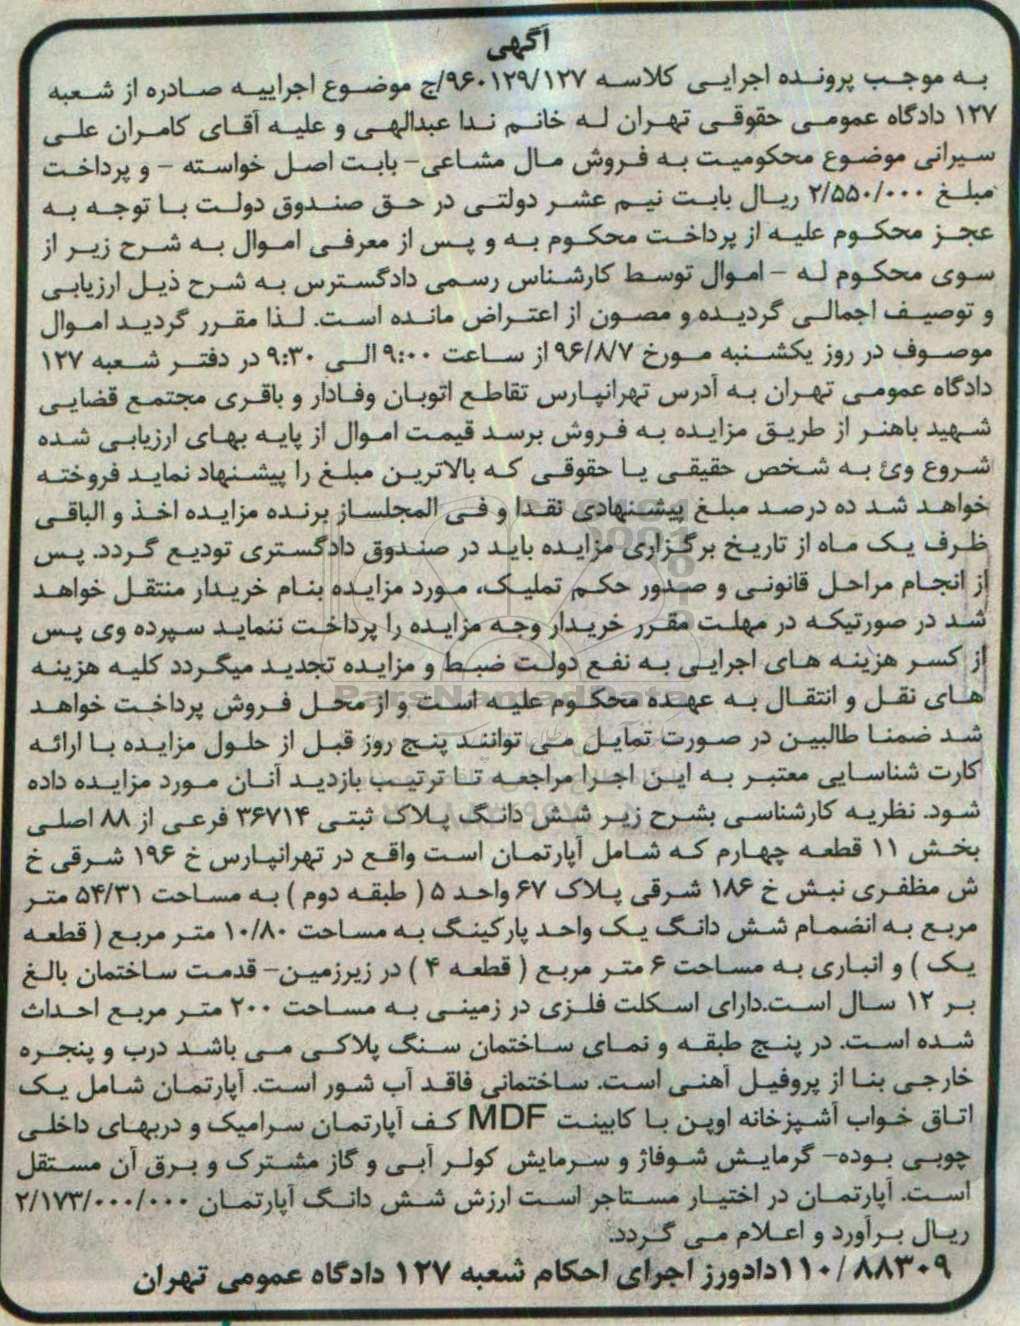 آگهی
به موجب پرونده اجرایی کلاسه ۹۶۰۱۲۹/۱۲۷/ج موضوع اجراییه صادره از شعبه
۱۲۷ دادگاه عمومی حقوقی تهران له خانم ندا عبدالهی و علیه آقای کامران علی
سیرانی موضوع محکومیت به فروش مال مشاعی- بابت اصل خواسته - و پرداخت
مبلغ ۲/۵۵۰/۰۰۰ ریال بابت نیم عشر دولتی در حق صندوق دولت با توجه به
عجز محکوم علیه از پرداخت محکوم به و پس از معرفی اموال به شرح زیر از
سوی محکوم له - اموال توسط کارشناس رسمی دادگسترس به شرح ذیل ارزیابی
و توصیف اجمالی گردیده و مصون از اعتراض مانده است. لذا مقرر گردید اموال
موصوف در روز یکشنبه مورخ ۹۶/۸/۷ از ساعت ۹:۰۰ الی ۹:۳۰ در دفتر شعبه ۱۲۷
دادگاه عمومی تهران به آدرس تهرانپارس تقاطع اتوبان وفادار و باقری مجتمع قضایی
شهید باهنر از طریق مزایده به فروش برسد قیمت اموال از پایه بهای ارزیابی شده
شروع وئ به شخص حقیقی یا حقوقی که بالاترین مبلغ را پیشنهاد نماید فروخته
خواهد شد ده درصد مبلغ پیشنهادی نقدا و فی المجلساز برنده مزایده اخذ و الباقی
ظرف یک ماه از تاریخ برگزاری مزایده باید در صندوق دادگستری تودیع گردد. پس
از انجام مراحل قانونی و صدور حکم تملیک، مورد مزایده بنام خریدار منتقل خواهد
شد در صورتیکه در مهلت مقرر خریدار وجه مزایده را پرداخت ننماید سپرده وی پس
از کسر هزینه های اجرایی به نفع دولت ضبط و مزایده تجدید میگردد کلیه هزینه
های نقل و انتقال به عهده محکوم علیه است و از محل فروش پرداخت خواهد
شد ضمنا طالبین در صورت تمایل می توانند پنج روز قبل از حلول مزایده با ارائه
کارت شناسایی معتبر به این اجرا مراجعه تا ترتیب بازدید آنان مورد مزایده داده
شود. نظریه کارشناسی بشرح زیر شش دانگ پلاک ثبتی ۳۶۷۱۴ فرعی از ۸۸ اصلی
بخش ۱۱ قطعه چهارم که شامل آپارتمان است واقع در تهرانپارس خ ۱۹۶ شرقی خ
ش مظفری نبش خ ۱۸۶ شرقی پلاک ۶۷ واحد ۵ ( طبقه دوم ) به مساحت ۵۴/۳۱ متر
مربع به انضمام شش دانگ یک واحد پارکینگ به مساحت ۱۰/۸۰ متر مربع ( قطعه
یک ) و انباری به مساحت ۶ متر مربع ( قطعه ۴ ) در زیرزمین- قدمت ساختمان بالغ
بر ۱۲ سال است.دارای اسکلت فلزی در زمینی به مساحت ۲۰۰ متر مربع احداث
شده است. در پنج طبقه و نمای ساختمان سنگ پلاکی می باشد درب و پنجره
خارجی بنا از پروفیل آهنی است. ساختمانی فاقد آب شور است. آپارتمان شامل یک
اتاق خواب آشپزخانه اوپن با کابینت MDF کف آپارتمان سرامیک و دربهای داخلی
چوبی بوده- گرمایش شوفاژ و سرمایش کولر آبی و گاز مشترک و برق آن مستقل
است. آپارتمان در اختیار مستاجر است ارزش شش دانگ آپارتمان ۲/۱۷۳/۰۰۰/۰۰۰
ریال برآورد و اعلام می گردد.
۱۱۰/۸۸۳۰۹ دادورز اجرای احکام شعبه ۱۲۷ دادگاه عمومی تهران
ParsNamadData